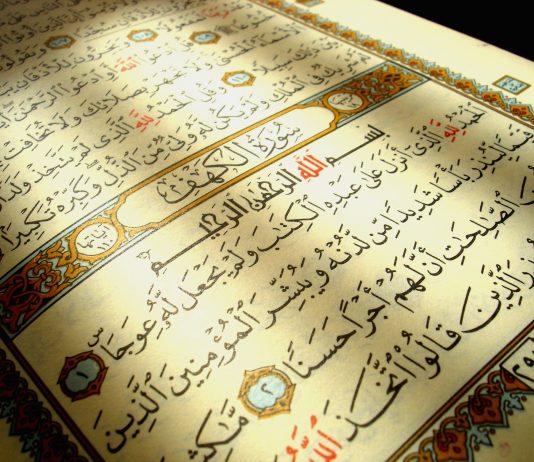 ٱللَّهَ أَوِ ٱدْعُوا۟ ٱلرَّحْمَٰنَ
تَجْهَرْ بِصَلَاتِكَ وَلَا تُخَافِتْ
وَقُلِ ٱلْحَمْدُ لِلَّهِ ٱلَّذِى لَمْ يَتَّخِذْ وَلَدًا
فِى ٱلْمُلْكِ وَلَمْ يَكُن لَّهُۥ وَلِىٌّ مِّنَ ٱلذُّلِّ وَكَبِّرْهُ تَكْبِيرًا
سُورَةُ ٱلْكَهْفِ
بِسْمِ ٱللَّهِ ٱلرَّحْمَٰنِ ٱلرَّحِيمِ
ٱلْحَمْدُ لِلَّهِ ٱلَّذِىٓ أَنزَلَ عَلَىٰ عَبْدِهِ ٱلْكِتَٰبَ وَلَمْ يَجْعَل لَّهُۥ عِوَجَا ۜ ١
قَيِّمًا لِّيُنذِرَ بَأْسًا شَدِيدًا مِّن لَّدُنْهُ وَيُبَشِّرَ ٱلْمُؤْمِنِينَ ٱلَّذِينَ
ٱلصَّٰلِحَٰتِ أَنَّ لَهُمْ أَجْرًا حَسَنًا ٢ مَّٰكِثِينَ
ٱلَّذِينَ قَالُوا۟ ٱتَّخَذَ ٱللَّهُ